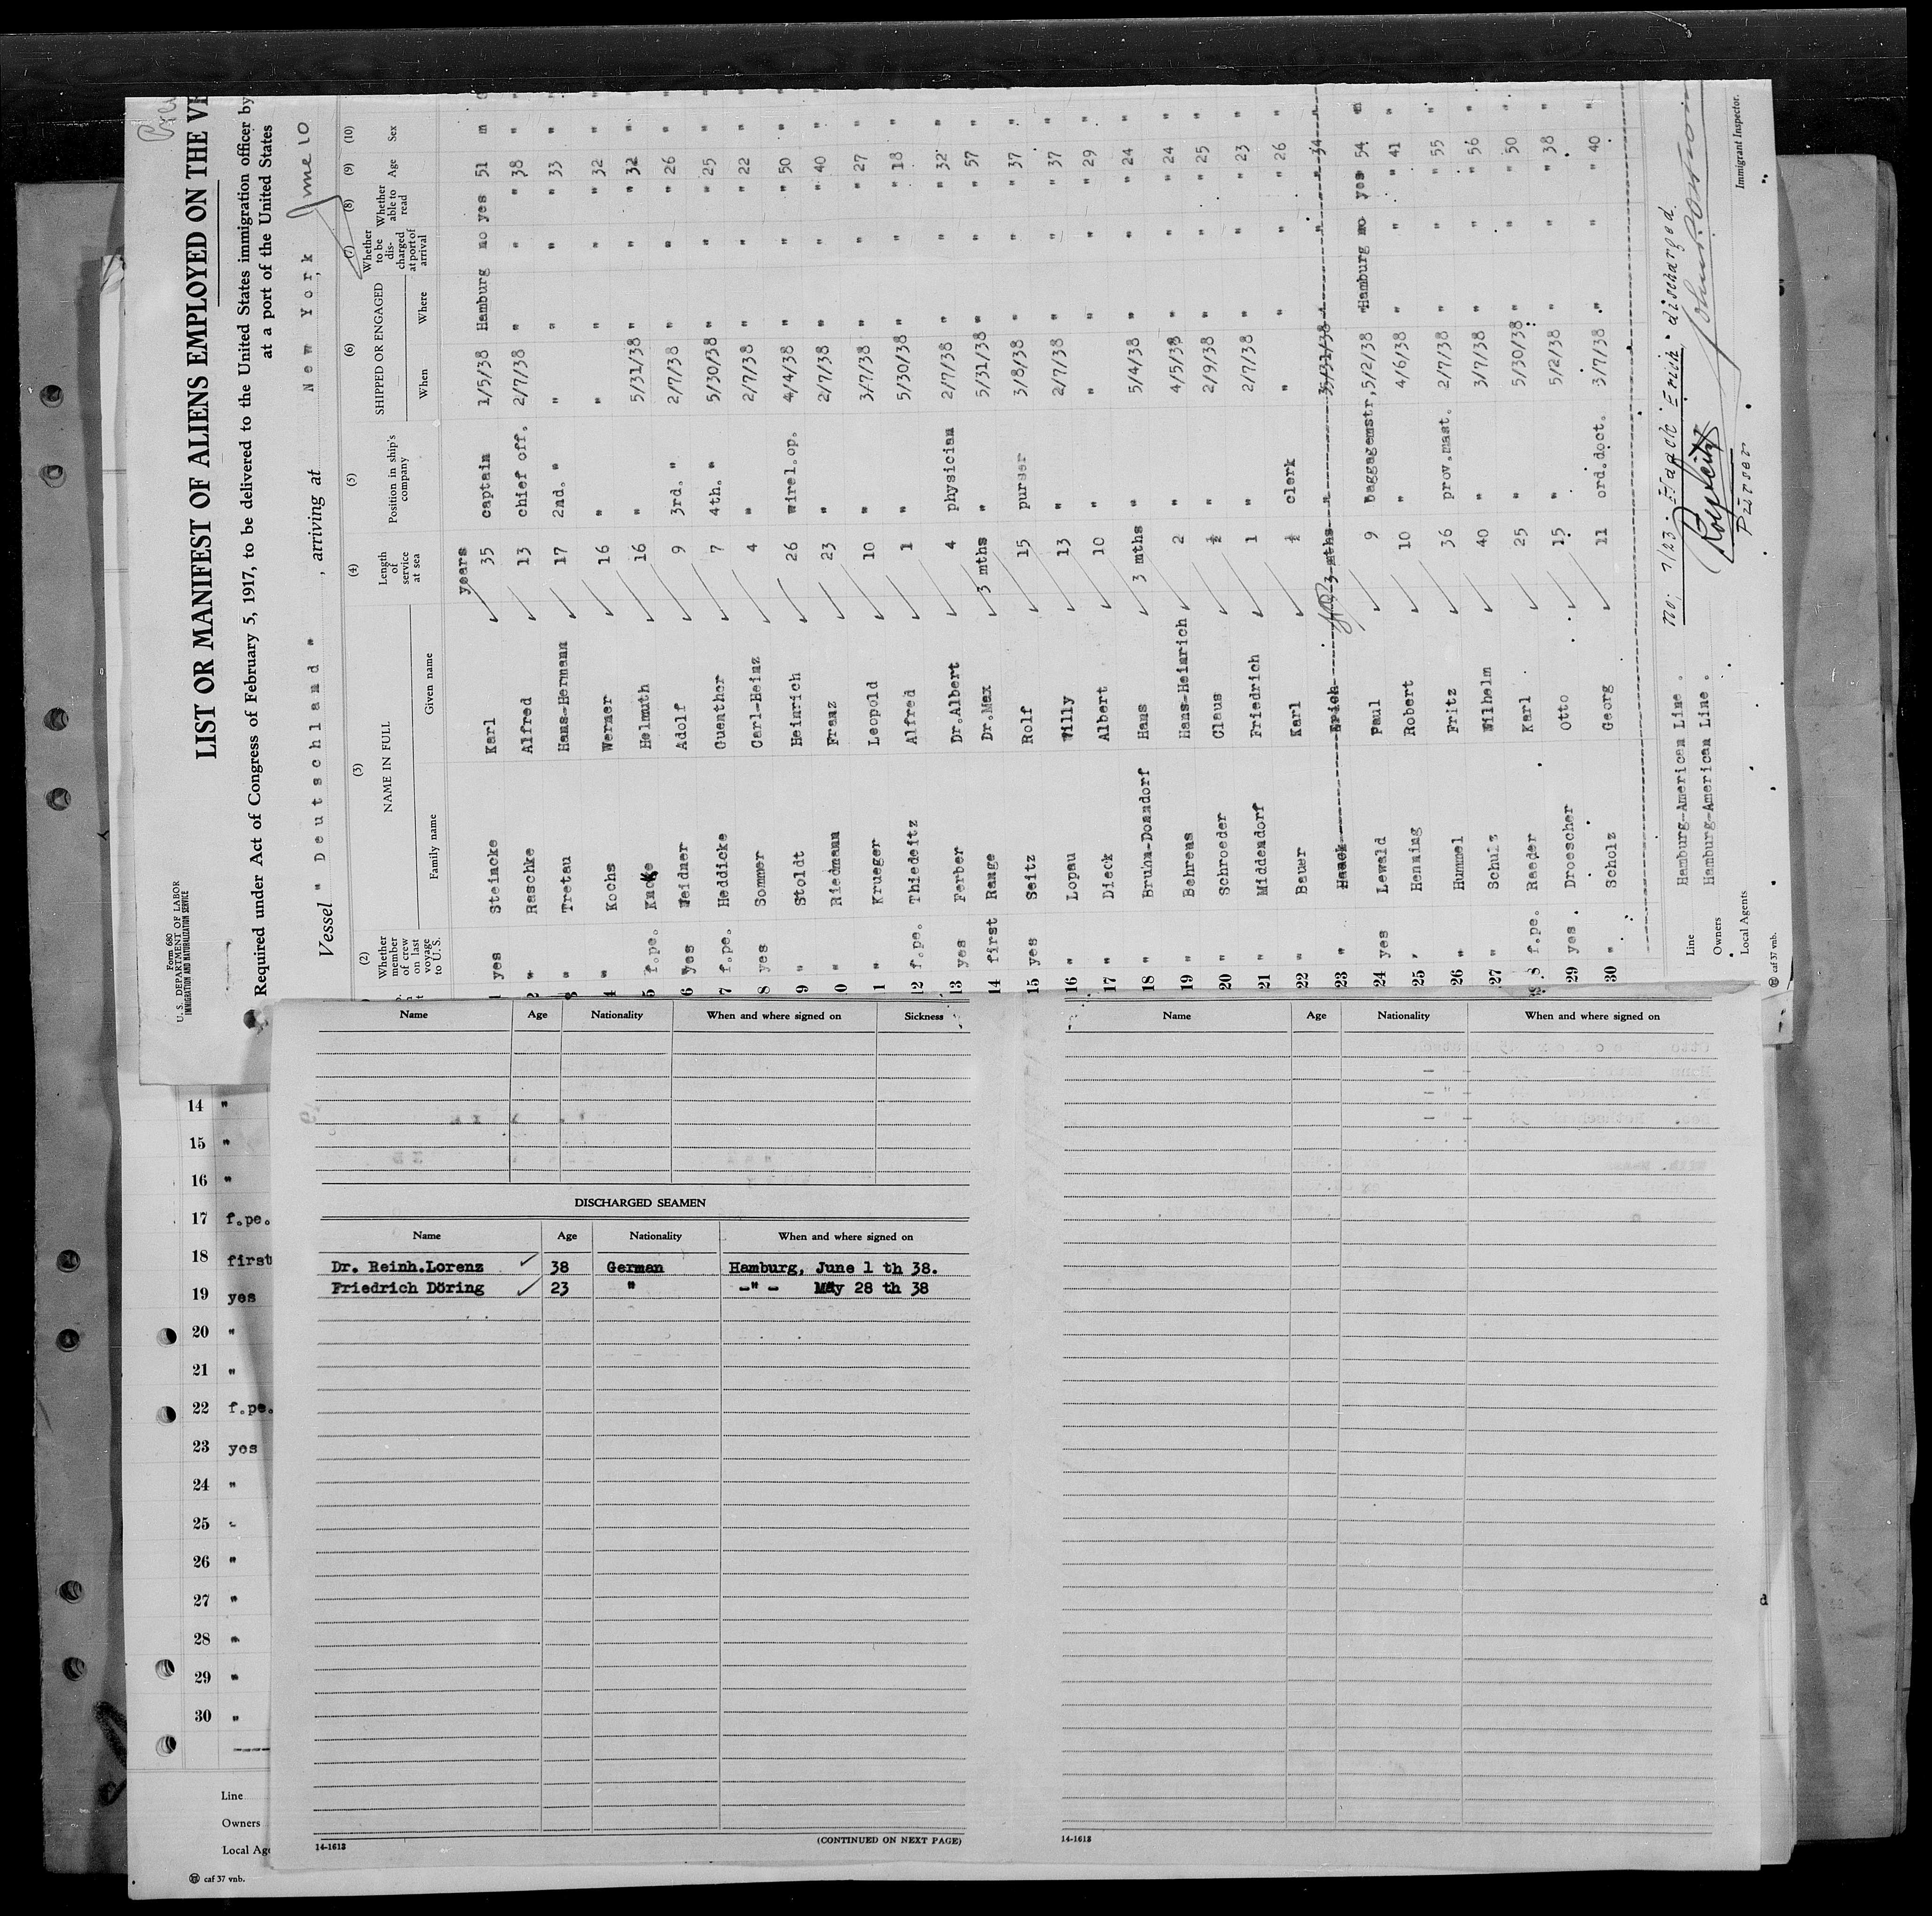 Form 680
U. S. DEPARTMENT OF LABOR
IMMIGRATION AND NATURALIZATION SERVICE
LIST OR MANIFEST OF ALIENS EMPLOYED ON THE VE
Required under Act of Congress of February 5, 1917, to be delivered to the United States immigration officer by
at a port of the United States
Vessel " Deutschland ", arriving at New York, June 10
(2) (3) (4) (5) (6) (7) (8) (9) (10)
Whether member of crew on last voyage to U. S. NAME IN FULL Family name Given name Length of service at sea Position in ship's company SHIPPED OR ENGAGED When Where Whether to be discharged at port of arrival Whether able to read Age Sex
years
1 yes Steincke Karl 35 captain 1/5/38 Hamburg no yes 51 m
2 " Raschke Alfred 13 chief off. 2/7/38 " " " 38 "
3 " Tretau Hans-Hermann 17 2nd. " " " " " 33 "
4 " Kochs Werner 16 " " " " " 32 "
5 f.pe. Knoke Helmuth 16 " 5/31/38 " " " 32 "
6 yes Weidner Adolf 9 3rd. " 2/7/38 " " " 26 "
7 f.pe. Heddicke Guenther 7 4th. " 5/30/38 " " " 25 "
8 yes Sommer Carl-Heinz 4 " 2/7/38 " " " 22 "
9 " Stoldt Heinrich 26 wirel.op. 4/4/38 " " " 50 "
0 " Riedmann Franz 23 " 2/7/38 " " " 40 "
1 " Krueger Leopold 10 " 3/7/38 " " " 27 "
12 f.pe. Thiedeitz Alfred 1 " 5/30/38 " " " 18 "
13 yes Ferber Dr.Albert 4 physician 2/7/38 " " " 32 "
14 first Range Dr.Max 3 mths " 5/31/38 " " " 57 "
15 yes Seitz Rolf 15 purser 3/8/38 " " " 37 "
16 " Lopau Willy 13 " 2/7/38 " " " 37 "
17 " Dieck Albert 10 " " " " " 29 "
18 " Bruhn-Donndorf Hans 3 mths " 5/4/38 " " " 24 "
19 " Behrens Hans-Heinrich 2 " 4/5/38 " " " 24 "
20 " Schroeder Claus ½ " 2/9/38 " " " 25 "
21 " Middendorf Friedrich 1 " 2/7/38 " " " 23 "
22 " Bauer Karl ½ clerk " " " " 26 "
23 " Haack Erich 3 mths " 5/31/38 " " " 34 "
24 yes Lewald Paul 9 baggagemstr, 5/2/38 Hamburg no yes 54 m
25 " Henning Robert 10 " 4/6/38 " " " 41 "
26 " Hummel Fritz 36 prov.mast. 2/7/38 " " " 55 "
27 " Schulz Wilhelm 40 " 3/7/38 " " " 56 "
28 f.pe. Raeder Karl 25 " 5/30/38 " " " 50 "
29 yes Droescher Otto 15 " 5/2/38 " " " 38 "
30 " Scholz Georg 11 ord.doct. 3/7/38 " " " 40 "
Line Hamburg-American Line.
Owners Hamburg-American Line.
Local Agents
no: 1/23. Haack Erich discharged
Purser
Immigrant Inspector.
caf 37 vnb.
Name Age Nationality When and where signed on Sickness
DISCHARGED SEAMEN
Name Age Nationality When and where signed on
Dr. Reinh.Lorenz 38 German Hamburg, June 1 th 38.
Friedrich Döring 23 " -"- May 28 th 38
14-1618 (CONTINUED ON NEXT PAGE)
Name Age Nationality When and where signed on
14-1618
14 "
15 "
16 "
17 f.pe.
18 first
19 yes
20 "
21 "
22 f.pe.
23 yes
24 "
25 "
26 "
27 "
28 "
29 "
30 "
Line
Owners
Local Age
caf 37 vnb.